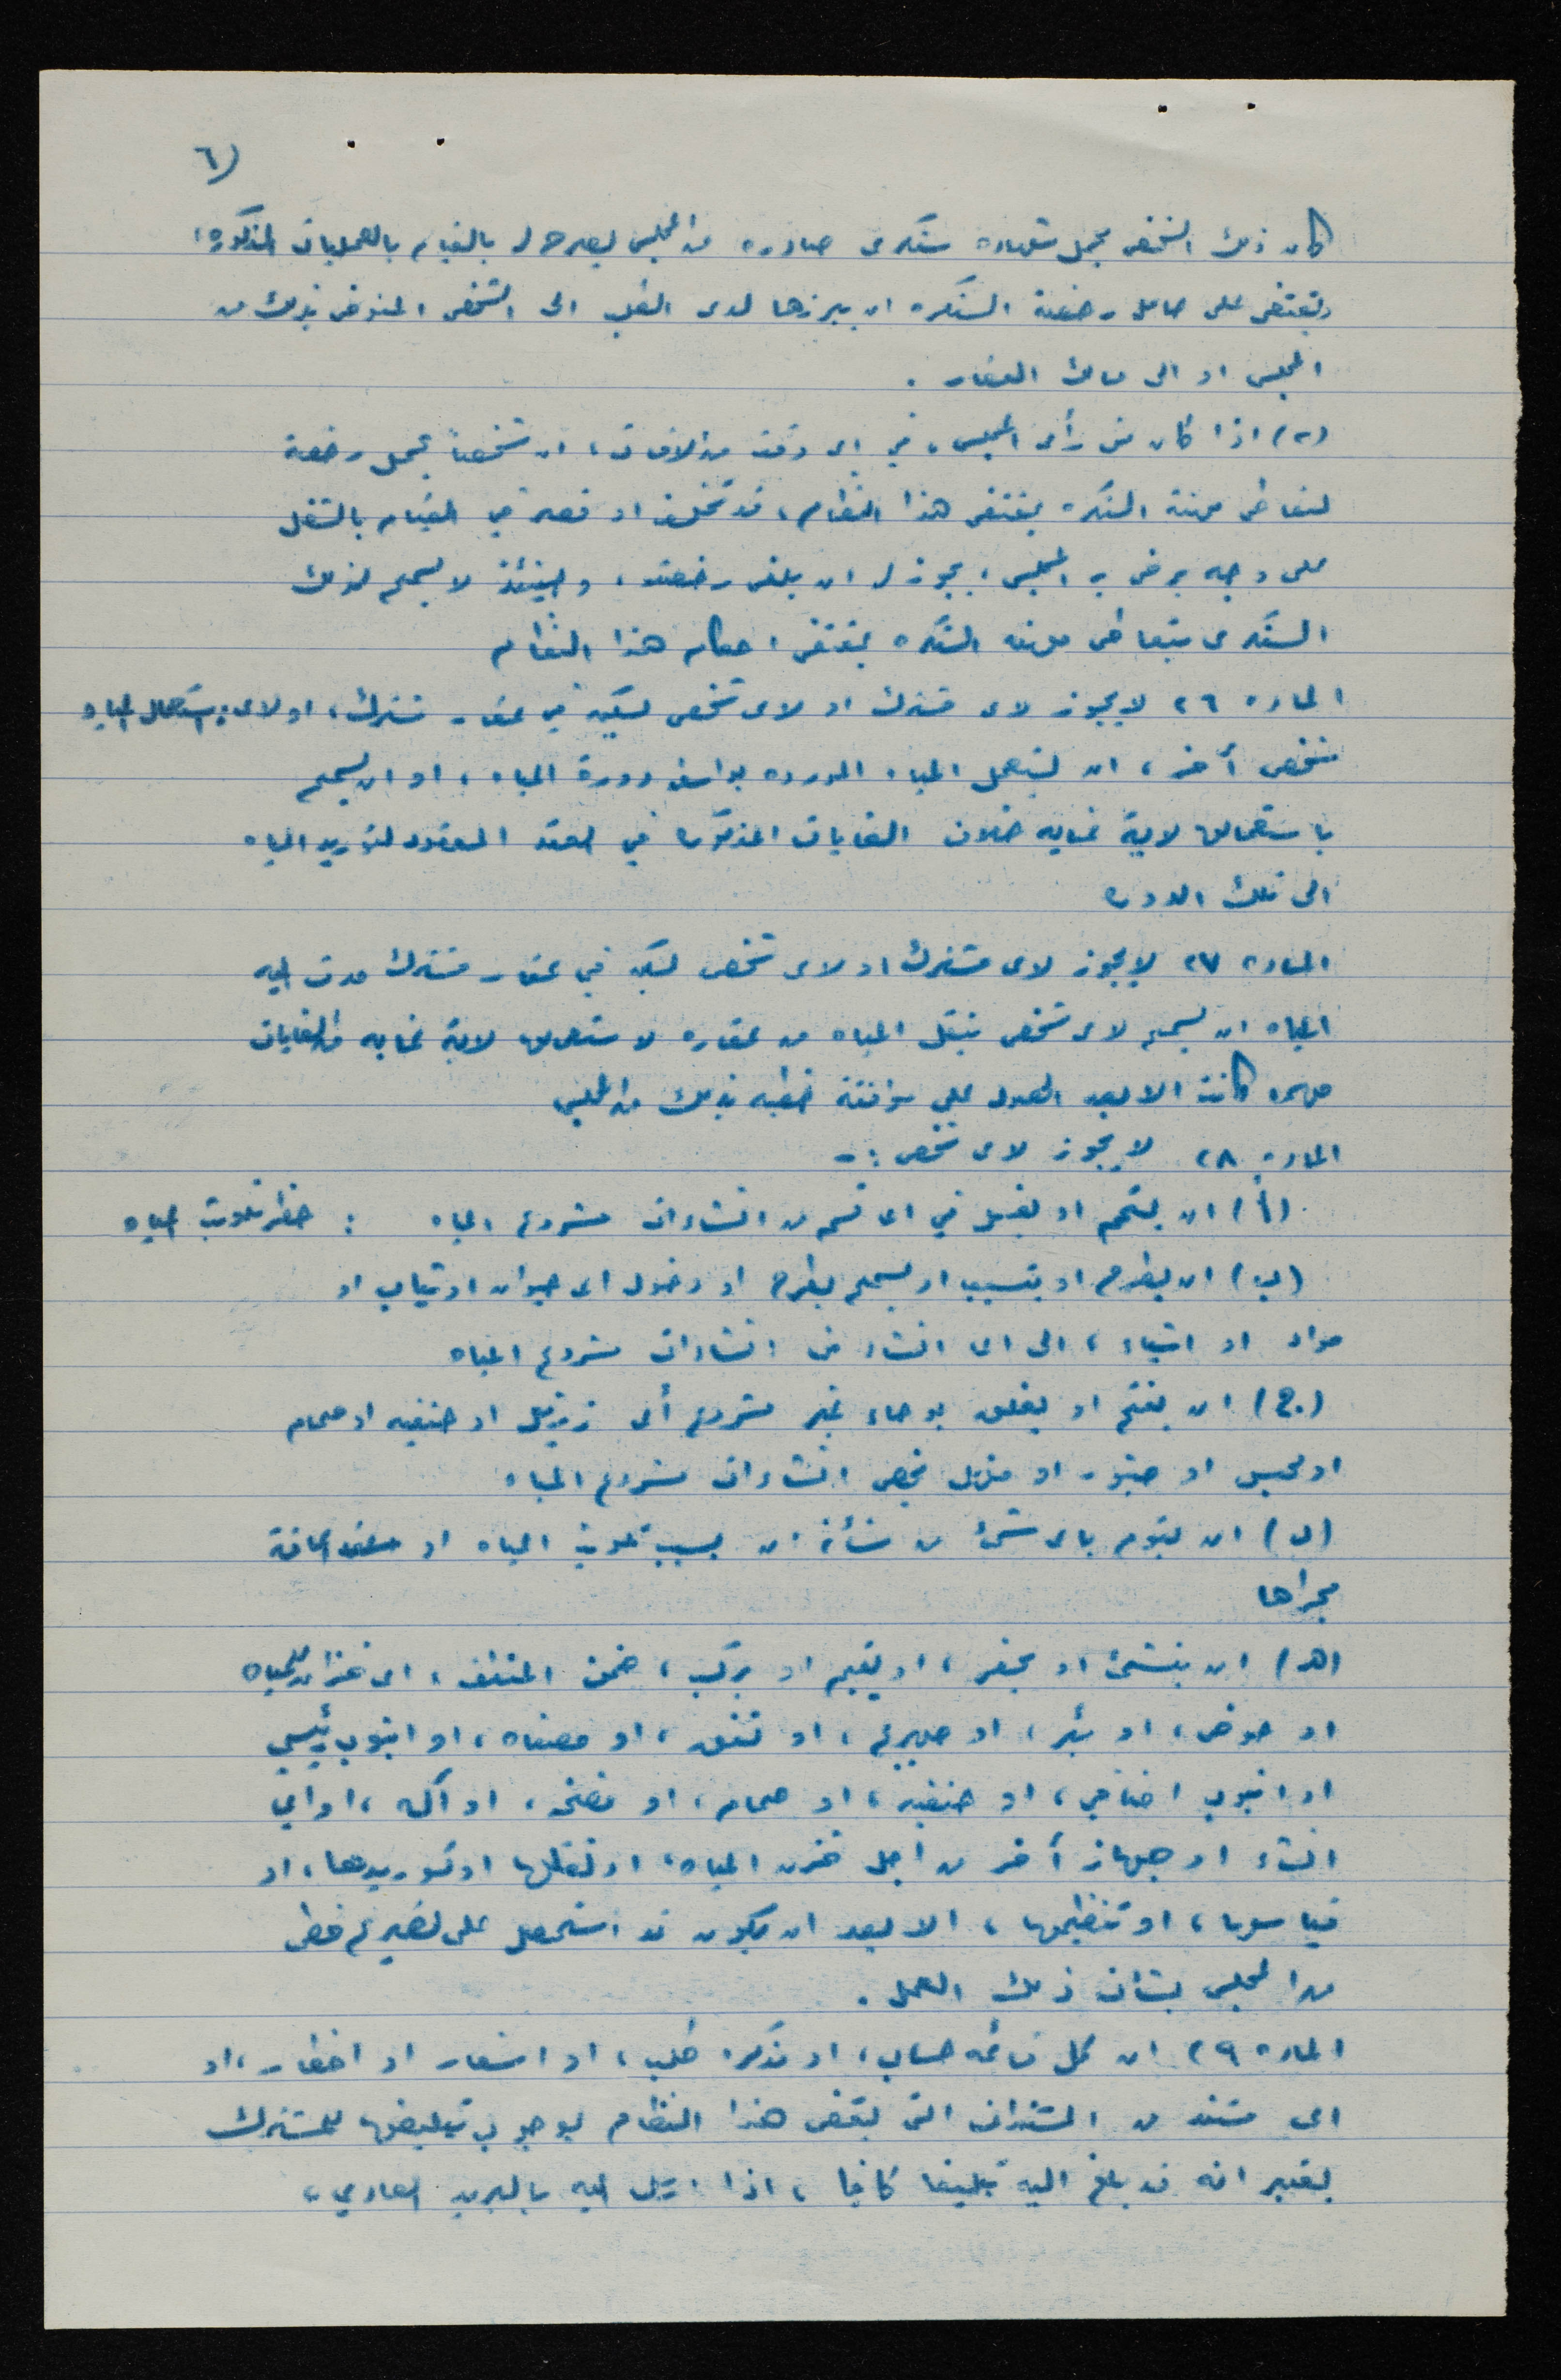 ٦)
كان ذلك الشخص يحمل شهادة سنكري صادرة من المجلس يصرح له بالقيام بالعمليات المذكورة،
ويقتضى على حامل رخصة السنكره ان يبرزها لدى الطلب الى الشخص المفوض بذلك من
المجلس او الى مالك العقار .
(٢) اذا كان من رأى المجلس، في اى وقت من الاوقات، ان شخصاً يحمل رخصة
لتعاطي مهنة السنكرة بمقتضى هذا النظام، قد تخلف او قصر في القيام بالشغل
على وجه يرضى به المجلس، يجوز له ان يلغى رخصته، وحينئذ لا يسمح لذلك
السنكري بتعاطى مهنه السنكره بمقتضى احكام هذا النظام
المادة ٢٦ لا يجوز لاى مشترك او لاى شخص يسكن في عقار مشترك، او لاى استعمال المياه
شخص أخر، ان يستعمل المياه الموردة بواسطة دورة المياه، او ان يسمح
باستعمالها لاية غايه خلاف الغايات المذكورة في العقد المعقود لتوريد المياه
الى تلك الدورة
المادة ٢٧ لا يجوز لاى مشترك او لاى شخص يسكن في عقار مشترك مدت اليه
المياه ان يسمح لاى شخص بنقل المياه من عقاره لاستعمالها لاية غايه من الغايات
مهما كانت الا بعد الحصول على موافقة خطيه بذلك من المجلس
المادة ٢٨ لا يجوز لاى شخص :-
(أ) ان يستحم او يغسل في اى قسم من انشاءات مشروع المياه : خطر تلويث المياه
(ب) ان يطرح او يتسبب او يسمح بطرح او دخول اى حيوان او ثياب او
مواد او اشياء، الى اى انشاء من انشاءات مشروع المياه
(ج) ان يفتح او يغلق بوجه غير مشروع أى زنبيل او حنفيه او صمام
او محبس او صنبور او منهل يخص انشاءات مشروع المياه
(د) ان يقوم باى شئ من شأنه ان يسبب تلويث المياه او اعاقة
مجراها
(هـ) ان ينشئ او يحفر، او يقيم او يركب، ضمن المنطقه، اى خزان للمياه
او حوض، او بئر، او صهريج، او نفق، او مصفاه، او انبوب رئيسي
او انبوب اضافي، او حنفيه، او صمام، او مضخه، او آله، او اى
انشاء او جهاز آخر من اجل خزن المياه، او نقلها او توريدها، او
قياسها، او تنظيمها، الا بعد ان يكون قد استحصل على تصريح خطى
من المجلس بشأن ذلك العمل .
المادة ٢٩ ان كل قائمه حساب، او مذكرة طلب، او اشعار او اخطار، او
اى مستند من المستندات التى يقضى هذا النظام بوجوب تبليغها للمشترك
يعتبر انه قد بلغ اليه تبليغا كافيا، اذا ارسل اليه بالبريد العادي،